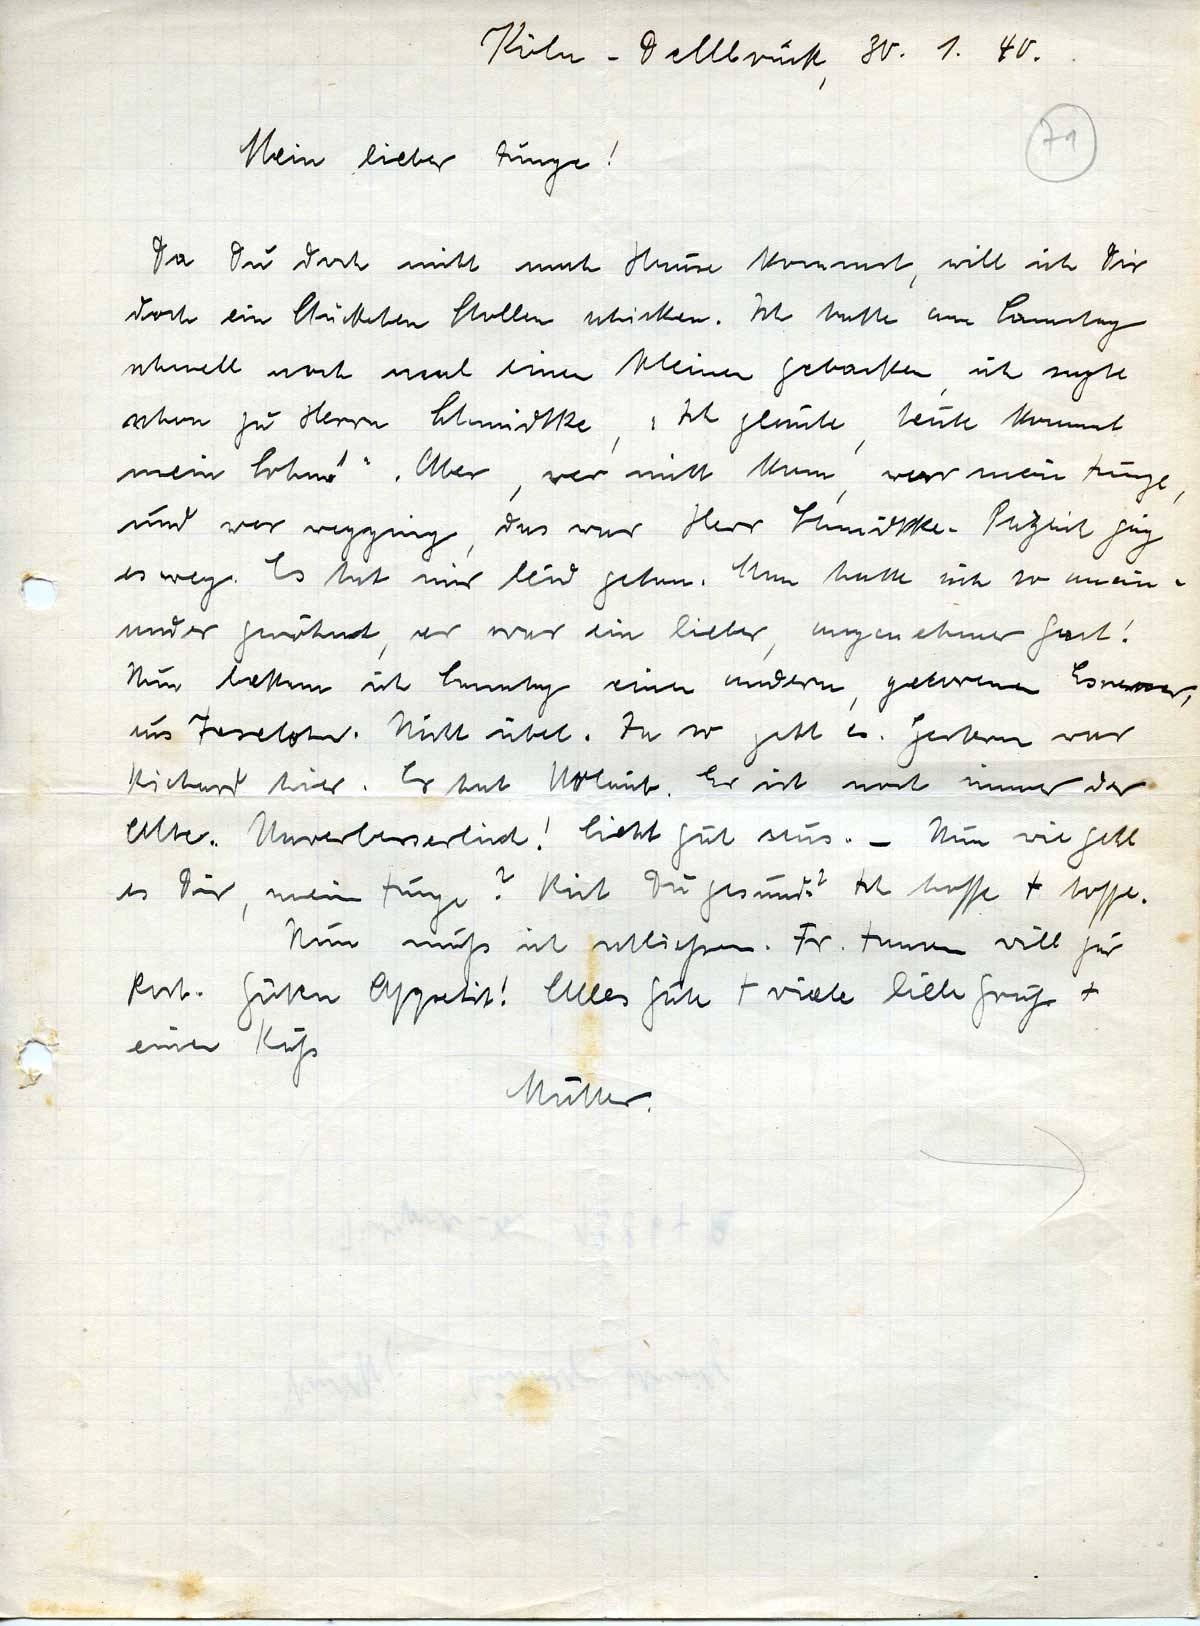 Köln - Dellbrück, 30. 1. 40.
71
Mein lieber Junge!
Da Du doch nicht nach Hause kommst, will ich Dir
doch ein Stückchen Stollen schicken. Ich hatte am Samstag
schnell noch mal einen kleinen gebacken, ich sagte
schon zu Herrn Schmidtke, "Ich glaube, heute kommt
mein Sohn!". Aber, wer nicht kam, war mein Junge,
und wer wegging, das war Herr Schmidtke. ging
es weg. Es hat mir leid getan. Man hatte sich so anein-
ander gewöhnt, er war ein lieber, angenehmer Gast!
Nun bekam ich Samstag einen andern, geborener Essener,
aus Iserlohn. Nicht übel. Ja so geht es. Gestern war
Richard hier. Er hat Urlaub. Er ist noch immer der
Alte. Unverbesserlich! Sieht gut aus. - Nun wie geht
es Dir, mein Junge? Bist Du gesund? Ich hoffe + hoffe.
Nun muß ich schließen. Fr. will zur
Post. Guten Appetit! Alles Gute + viele liebe Grüße +
einen Kuß
Mutter.